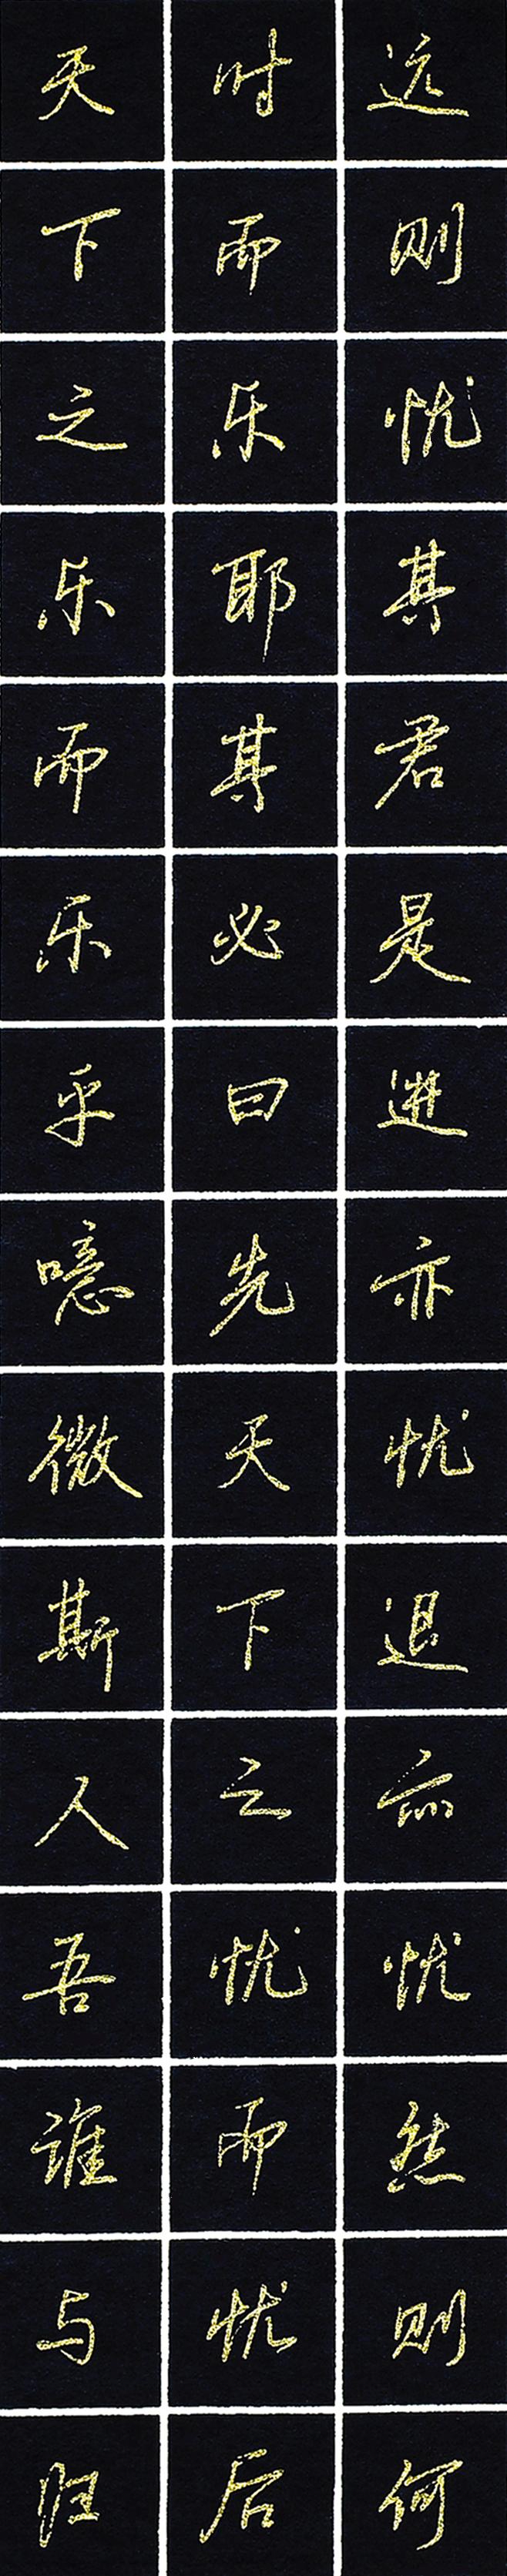 远则忧其君是进亦忧退亦忧然则何
时而乐耶其必曰先天下之忧而忧后
天下之乐而乐乎噫微斯人吾谁与归